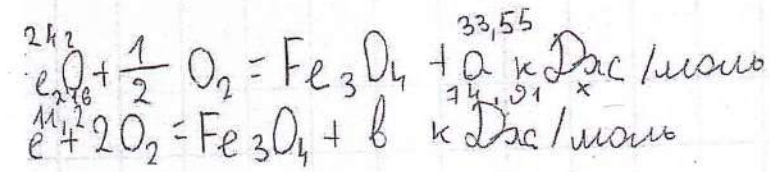 24 г 33,55
eO + 1/2 O₂ = Fe₃O₄ + a кДж/моль
216 74,91 x
11,2
e + 2O₂ = Fe₃O₄ + в кДж/моль